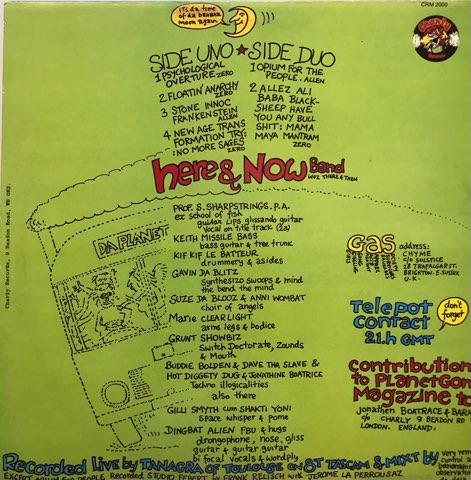 its da time
of da banana
moon again
CRM 2000
Charly
Records
SIDE UNO ★ SIDE DUO
1 PSYCHOLOGICAL
OVERTURE ZERO
2 FLOATIN' ANARCHY
ZERO
3 STONE INNOC
FRANKENSTEIN
ALLEN
4 NEW AGE TRANS
FORMATION TRY:
:NO MORE SAGES
ZERO
1 OPIUM FOR THE
PEOPLE. ALLEN
2 ALLEZ ALI
BABA BLACK-
SHEEP HAVE
YOU ANY BULL
SHIT: MAMA
MAYA MANTRAM
ZERO
Here & Now Band
WOZ THERE & THEN
PROF. S. SHARPSTRINGS. P.A.
ex school of fish
guiden lips glissando guitar
Vocal on title track (2a)
KEITH MISSILE BASS
bass guitar & tree trunk
KIF KIF LE BATTEUR
drummery & asides
GAVIN DA BLITZ
Synthesizo swoops & mind
the bend the mind
SUZE DA BLOOZ & ANNI WOMBAT
choir of angels
Marie CLEARLIGHT
arms legs & bodice
GRUNT SHOWBIZ
Switch Doctorate, Zounds
& Mouth
BUDDIE BOLDEN & DAVE THA SLAVE &
HOT DIGGETY DUG & JONATHINE BOATRICE
Techno illogicalities
also there
GILLI SMYTH cum SHAKTI YONI
Space whisper & pome
DINGBAT ALIEN FBU & hugs
drongophone, nose, gliss
guitar & guitar guitar
bi focal vocals & wordply
DA PLANET
Charly Records, 9 Beadon Road, W6 0EZ.
GAS
address:
CHYME
c/o SOLSTICE
28 TRAFALGAR ST.
BRIGHTON. E. SUSSEX
U.K.
Telepot
Contact
21.h GMT
don't
forget
contribution
to PLANETGON
Magazine to
jonathen BOATRACE & BARN
c/o CHARLY 9 BEADON RD
LONDON. ENGLAND.
Recorded Live by TANAGRA of TOULOUSE on 8T TASCAM & MIXT by
EXCEPT
RECORDED STUDIO
by FRANK RELISCH with JEROME LA PERROUSAZ